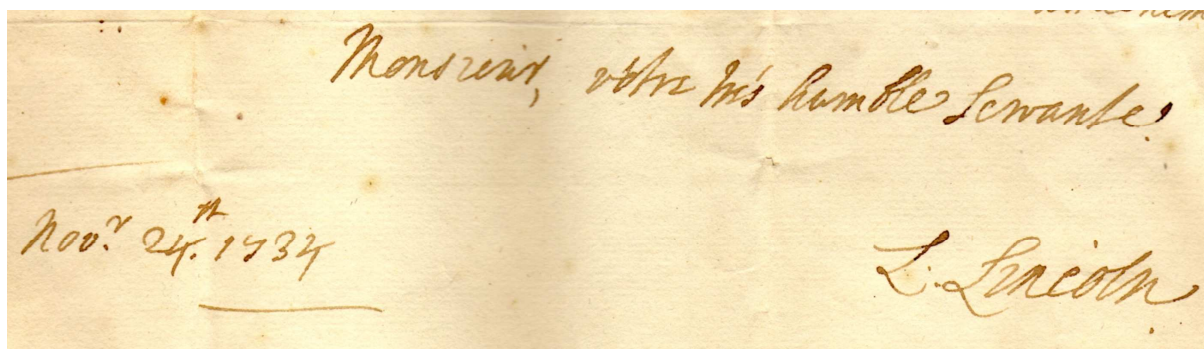 Monsieur, vôtre trés humble Servante.
Nov.r 24.th 1734
L. Lincoln